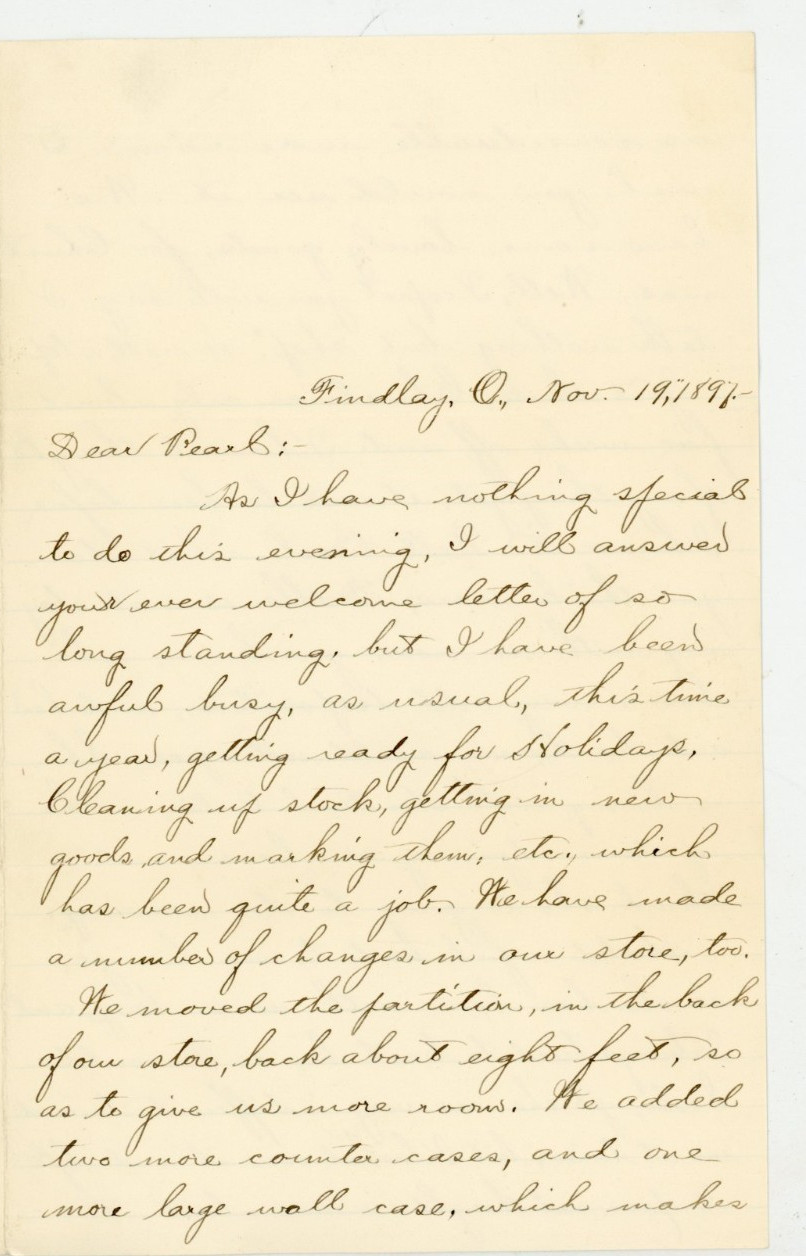 Findlay, O., Nov. 19, 1897.-
Dear Pearl:-
As I have nothing special
to do this evening, I will answer
your ever welcome letter of so
long standing. but I have been
awful busy, as usual, this time
a year, getting ready for Holidays,
Cleaning up stock, getting in new
goods, and marking them, etc., which
has been quite a job. We have made
a number of changes in our store, too.
We moved the partition, in the back
of our store, back about eight feet, so
as to give us more room. We added
two more counter cases, and one
more large wall case, which makes